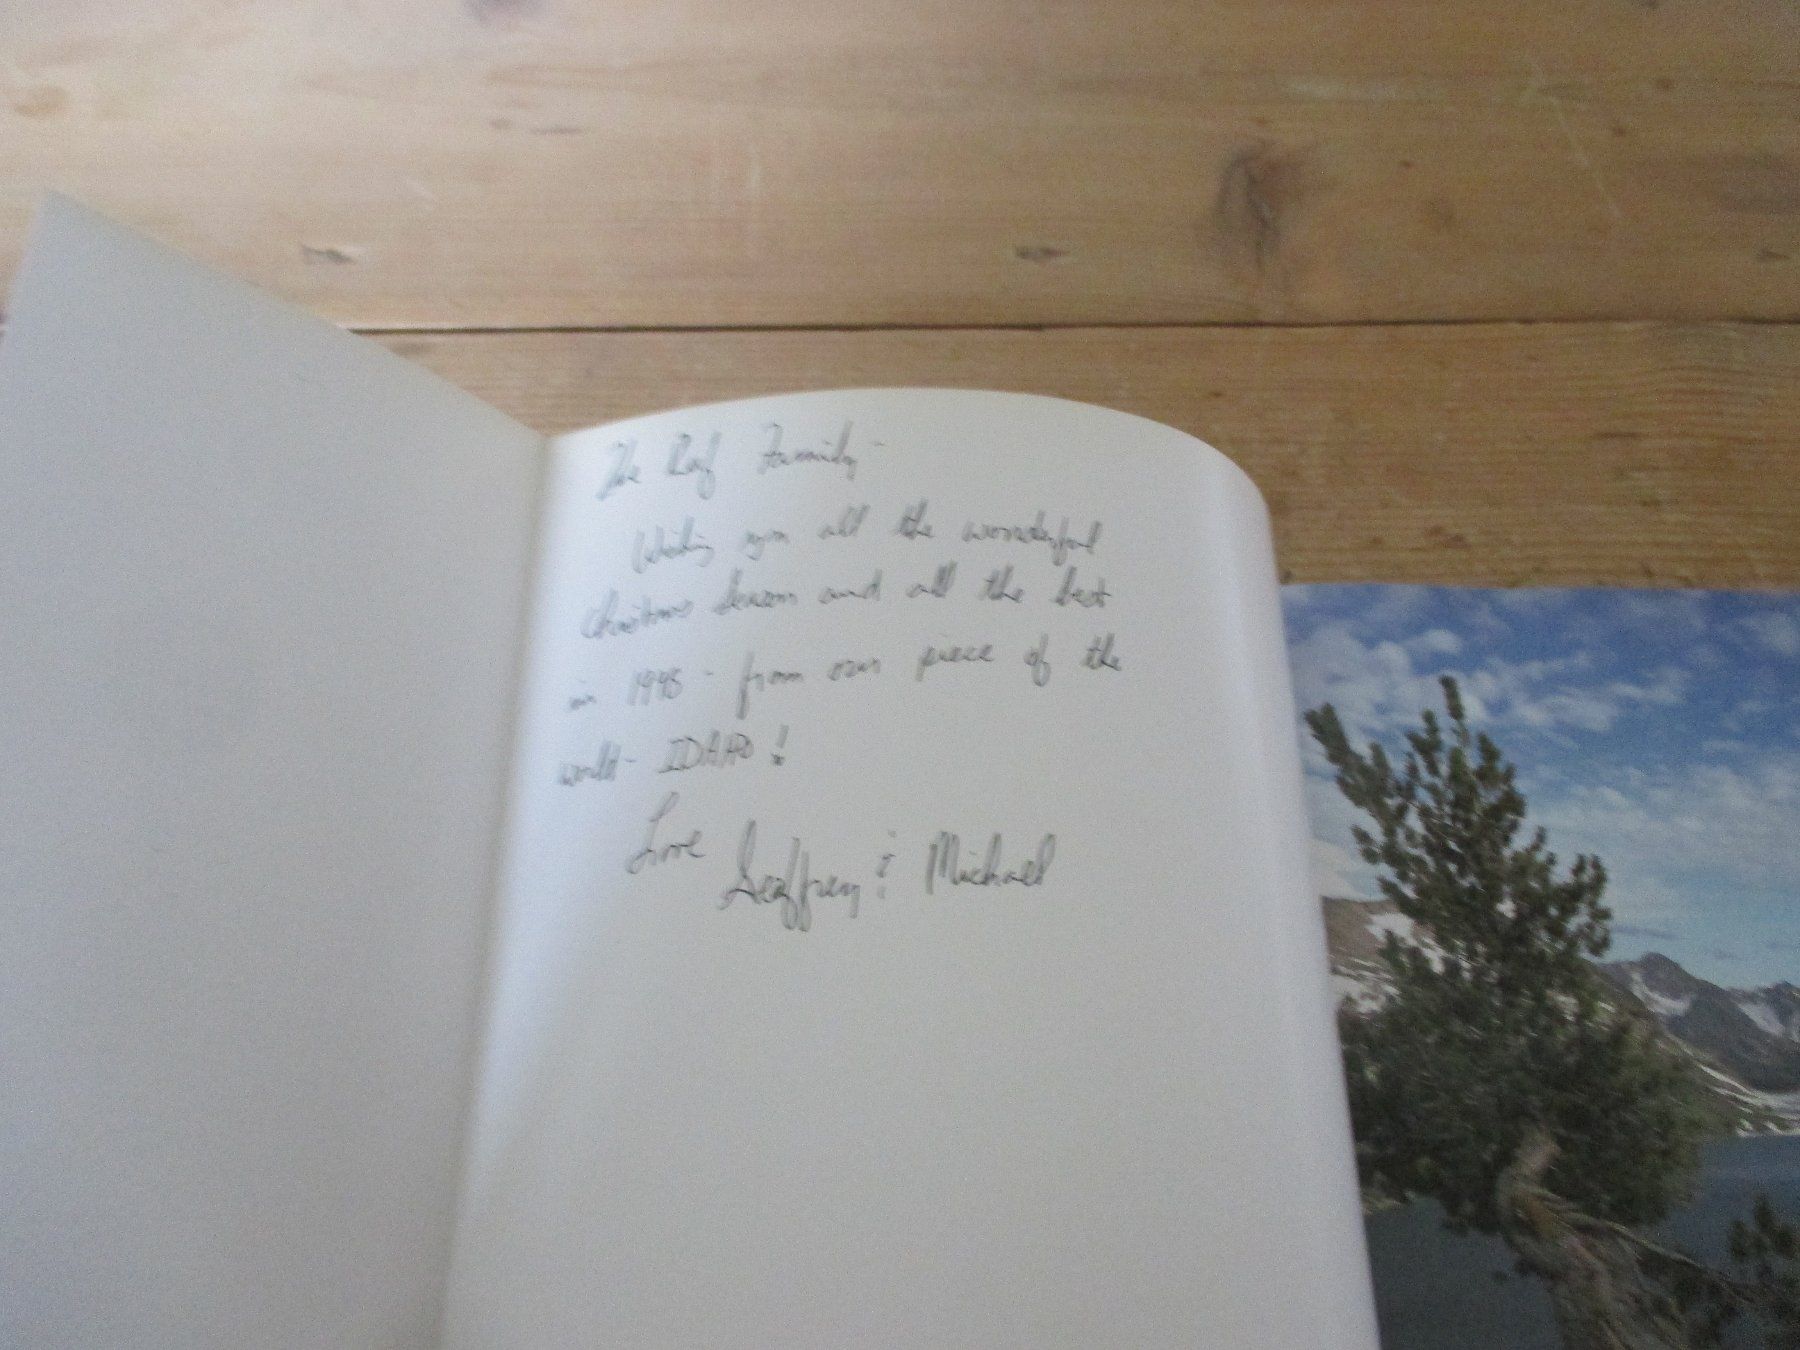 The Family-
Wishing you all the wonderful
Christmas Season and all the best
in - from our piece of the
world- IDAHO!
Love Geoffrey & Michael